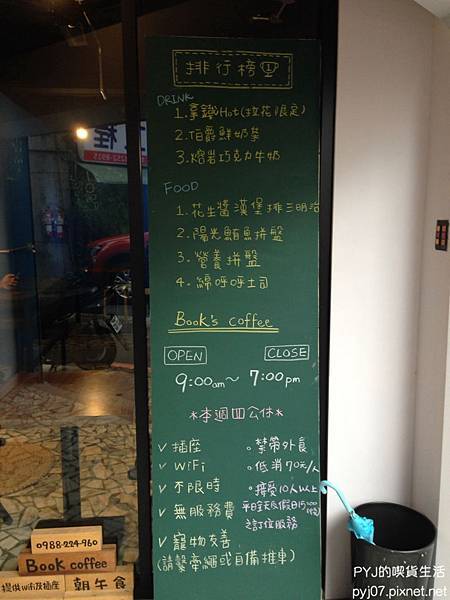 排行榜 1
DRINK
1.拿鐵Hot(拉花限定)
2.伯爵鮮奶茶
3.熔岩巧克力牛奶
FOOD
1.花生醬漢堡排三明治
2.陽光鮪魚拼盤
3.營養拼盤
4.綿呼呼土司
Book's coffee
OPEN CLOSE
9:00am~ 7:00pm
*本週四公休*
✓ 插座
✓ WiFi
✓ 不限時
✓ 無服務費
✓ 寵物友善
(請繫牽繩或自備推車)
。禁帶外食
。低消70元/人
。接受10人以上
之訂位服務
0988-224-960
Book coffee
提供wifi及插座 朝午食
PYJ的喫貨生活
pyj07.pixnet.net